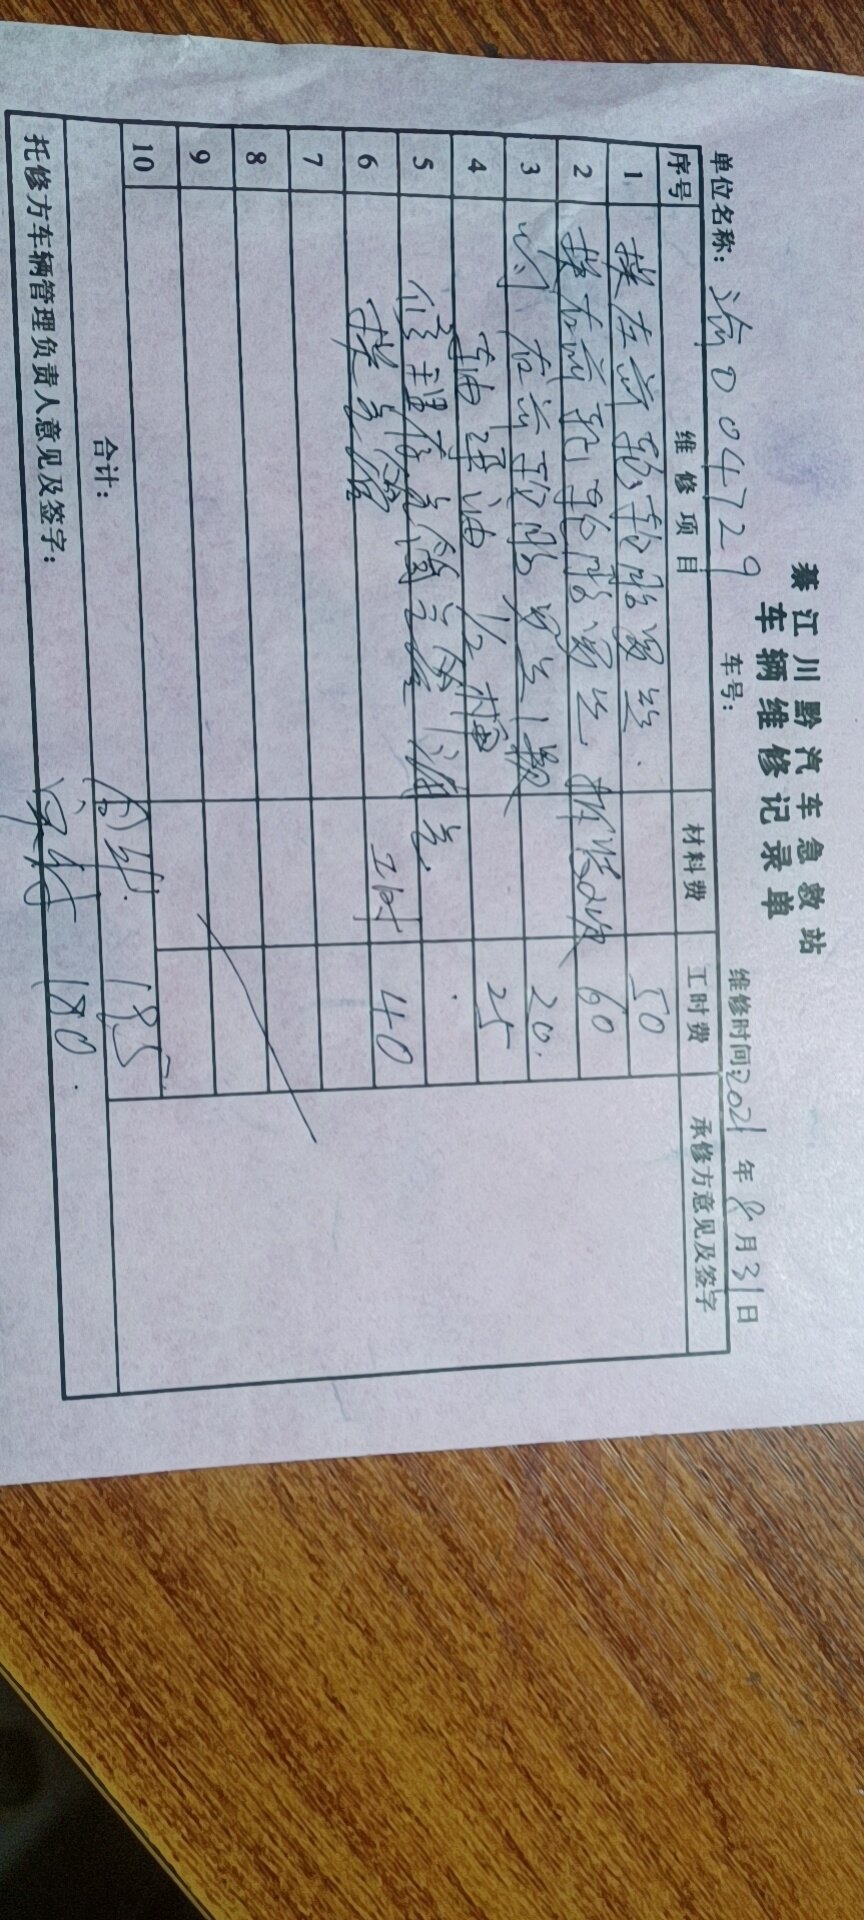 綦江川黔汽车急救站
车辆维修记录单
单位名称: 渝D04729 车号: 维修时间:2021年8月31日
序号 维修项目 材料费 工时费 承修方意见及签字
1 换左前轮轮胎螺丝. 50
2 换右前轮轮胎螺丝 拆装2次 60
3 右前轮胎螺丝1颗 20.
4 25
5 修理
6 换 工时 40
7
8
9
10
合计: 合计. 195.
托修方车辆管理负责人意见及签字: 实付 180.